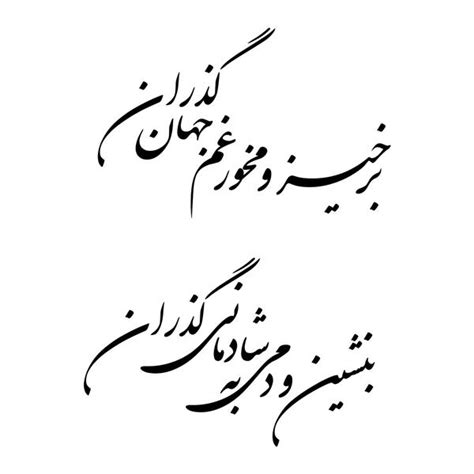 برخیز و مخور غم جهان گذران
بنشین و دمی به شادمانی گذران